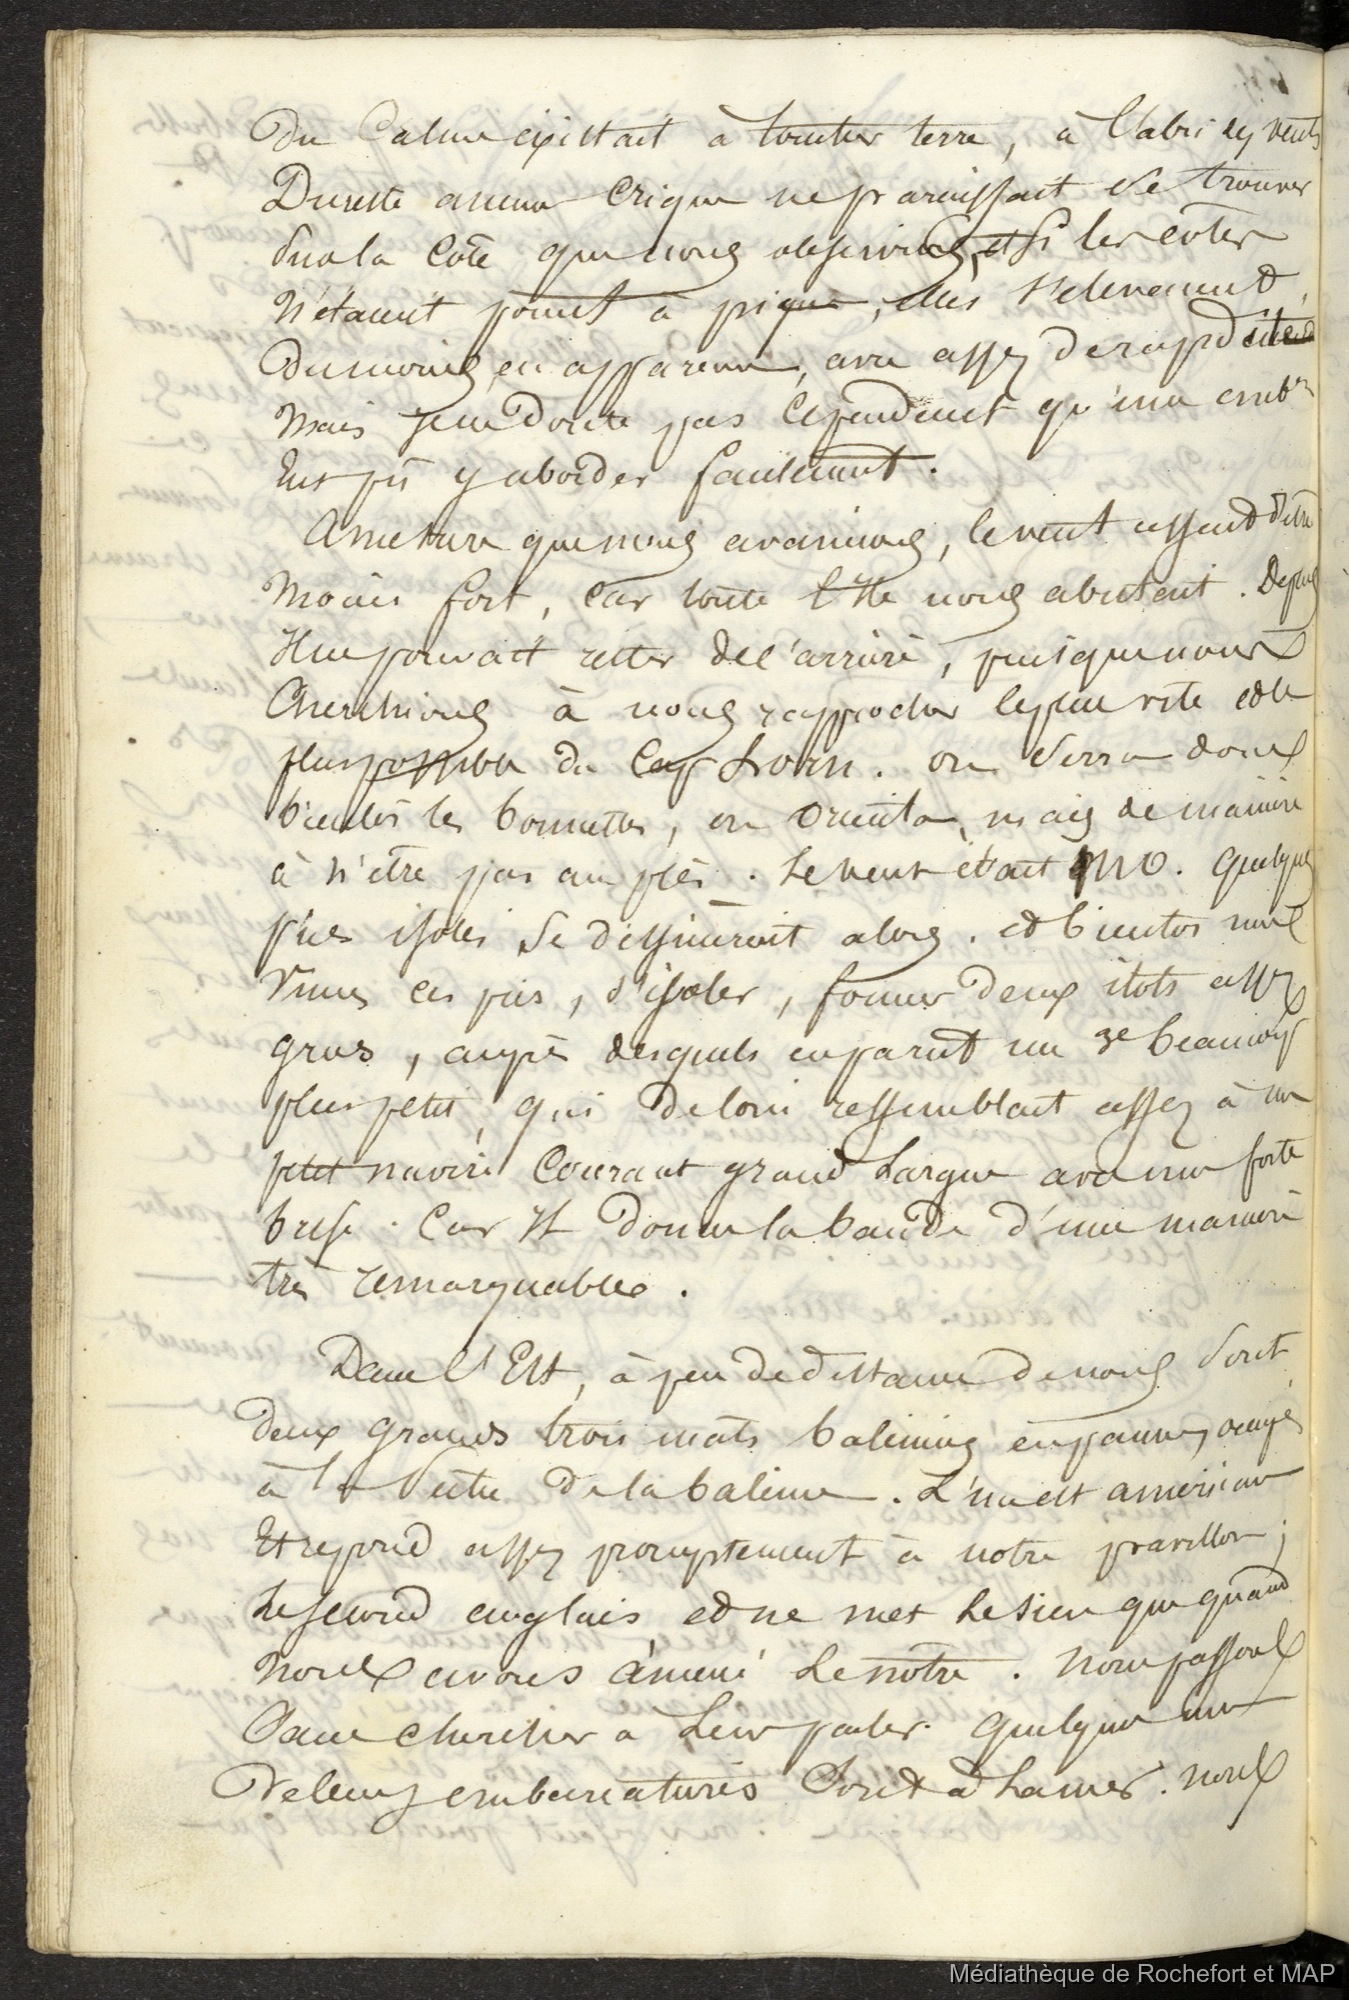 Du Calme existait à toucher terre, à l'abri des vents
Dureste aucune Crique ne paraissait se trouver
sur la Côte que nous observions, et si les côtes
N'étaient point à pique, elles s'elevaient,
du moins en apparence, avec assez de rapidité
Mais je ne doute pas cependant qu'une emb.on
Eut pû y aborder facilement.
A mesure que nous avancions, le vent cessait d'être
Moins fort, car toute l'Ile nous abritait. Depuis
Il ne pouvait rester de l'arrière, puisque nous
Cherchions à nous rapprocher le plus vite et le
plus possible du Cap horn. on serra donc
bientôt les bonnettes, on orienta, mais de manière
à n'être pas au plès. Le vent était ONO. quelques
pics isolés se dessinèrent alors. et bientôt nous
Vimes ces pics, s'isoler, former deux ilots assez
gros, auprès desquels enparut un 3e beaucoup
plus petit, qui de loin ressemblait assez à un
petit navire Courant grand Largue avec une forte
brise. Car Il donne la bande d'une manière
très remarquable.
Dans l'Est, à peu de distance de nous sont
deux grands trois mats baleiniers en panne, occupés
à la de la baleine. L'un est américain
Et repond assez promptement à notre pavillon;
Le second anglais et ne met le sien que quand
Nous avons amené le notre. Nous passons
Sans chercher à leur parler. quelques unes
de leurs embarcations sont à la mer. nous
Médiathèque de Rochefort et MAP